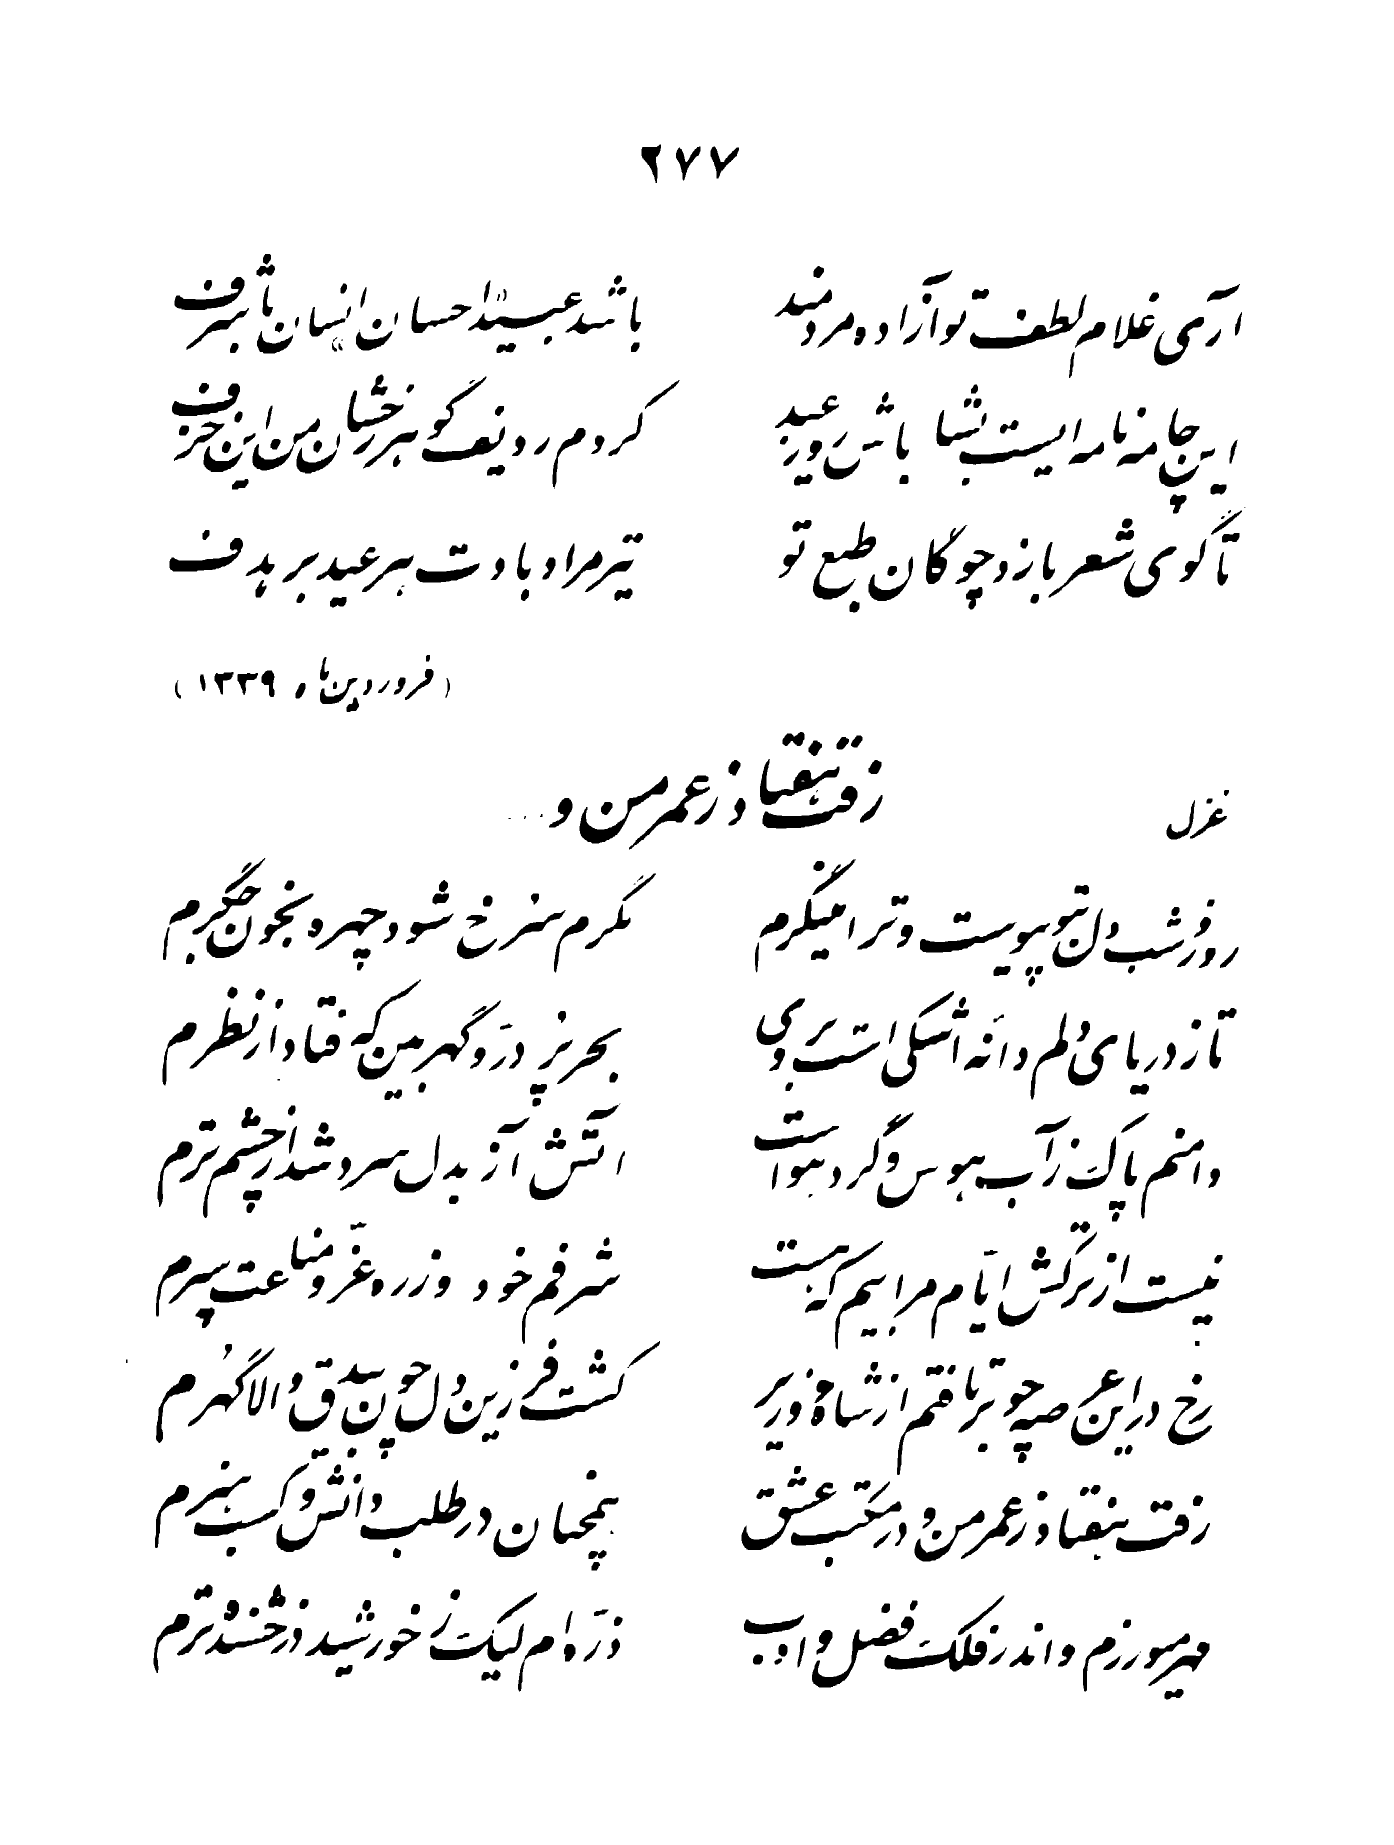 ۲۷۷
آری غلام لطف تو آزاده مردمند باشد عبید «احسان» انسان باشرف
این چامه نامه ایست بشاباش روز عید کردم ردیف گوهر رخشان من این خزف
تا گوی شعر بازد چوگان طبع تو تیر مراد بادت هر عید بر هدف
(فروردین ماه ۱۳۳۹)
رفت هفتاد ز عمر من و ...
غزل
روز و شب دل بتو پیوست و ترا مینگرم نگرم سرخ شود چهره بخون جگرم
تا ز دریای دلم دانه اشکی است بروی بحر پر در و گهر بین که فتاد از نظرم
دامنم پاک ز آب هوس و گرد هواست آتش آز بدل سرد شد از چشم ترم
نیست از ترکش ایام مرا بیم که هست شرفم خود و زره عز و مناعت سپرم
رخ در این عرصه چو برتافتم از شاه و وزیر کشت فرزین دل چون بیدق والاگهرم
رفت هفتاد ز عمر من و در مکتب عشق همچنان در طلب دانش و کسب هنرم
مهر میورزم و اندر فلک فضل و ادب ذره‌ام لیک ز خورشید درخشنده‌ترم